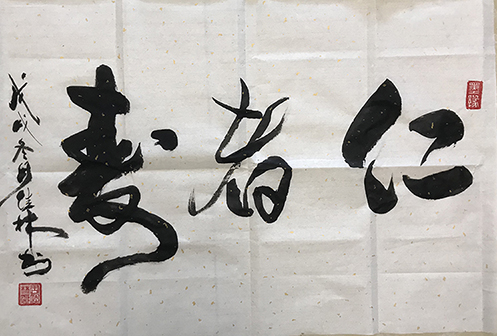 仁者寿
戊戌冬月佳林书